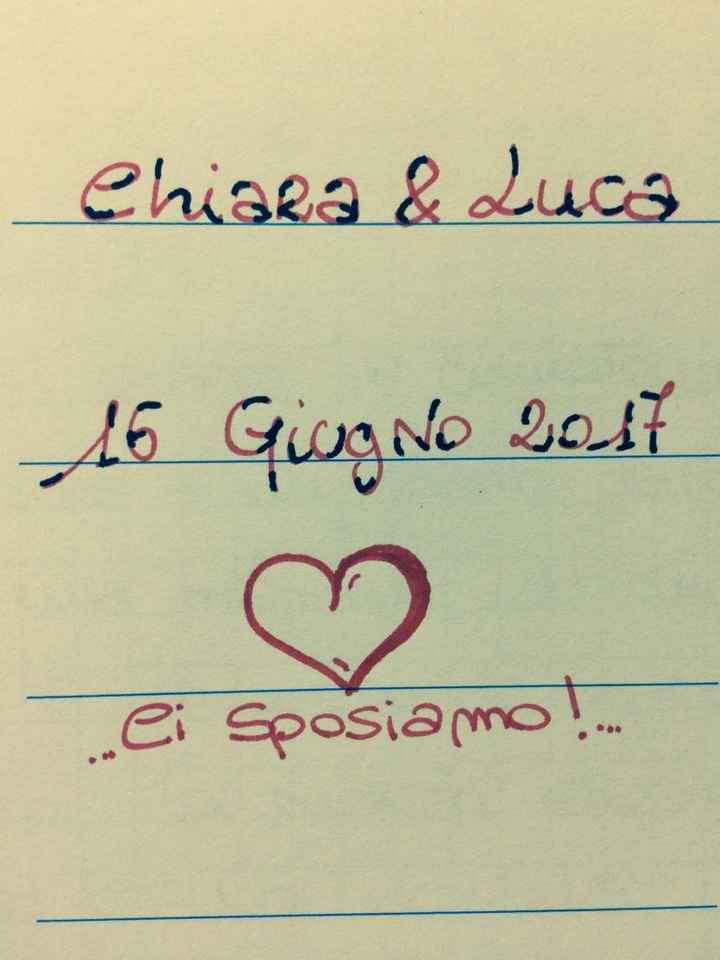 Chiara & Luca
16 Giugno 2017
...Ci sposiamo!...